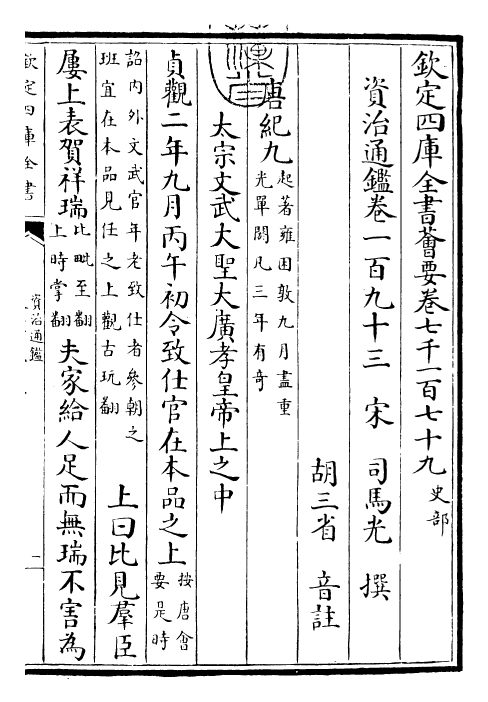 欽定四庫全書薈要卷七千一百七十九 史部
資治通鑑卷一百九十三 宋 司馬光 撰
胡三省 音註
唐紀九 起著雍困敦九月盡重
光單閼凡三年有奇
太宗文武大聖大廣孝皇帝上之中
貞觀二年九月丙午初令致仕官在本品之上 按唐會
要是時
詔内外文武官年老致仕者參朝之
班宜在本品見任之上觀古玩翻
上曰比見羣臣
屢上表賀祥瑞 比毗至翻
上時掌翻
夫家給人足而無瑞不害為
欽定四庫全書
資治通鑑